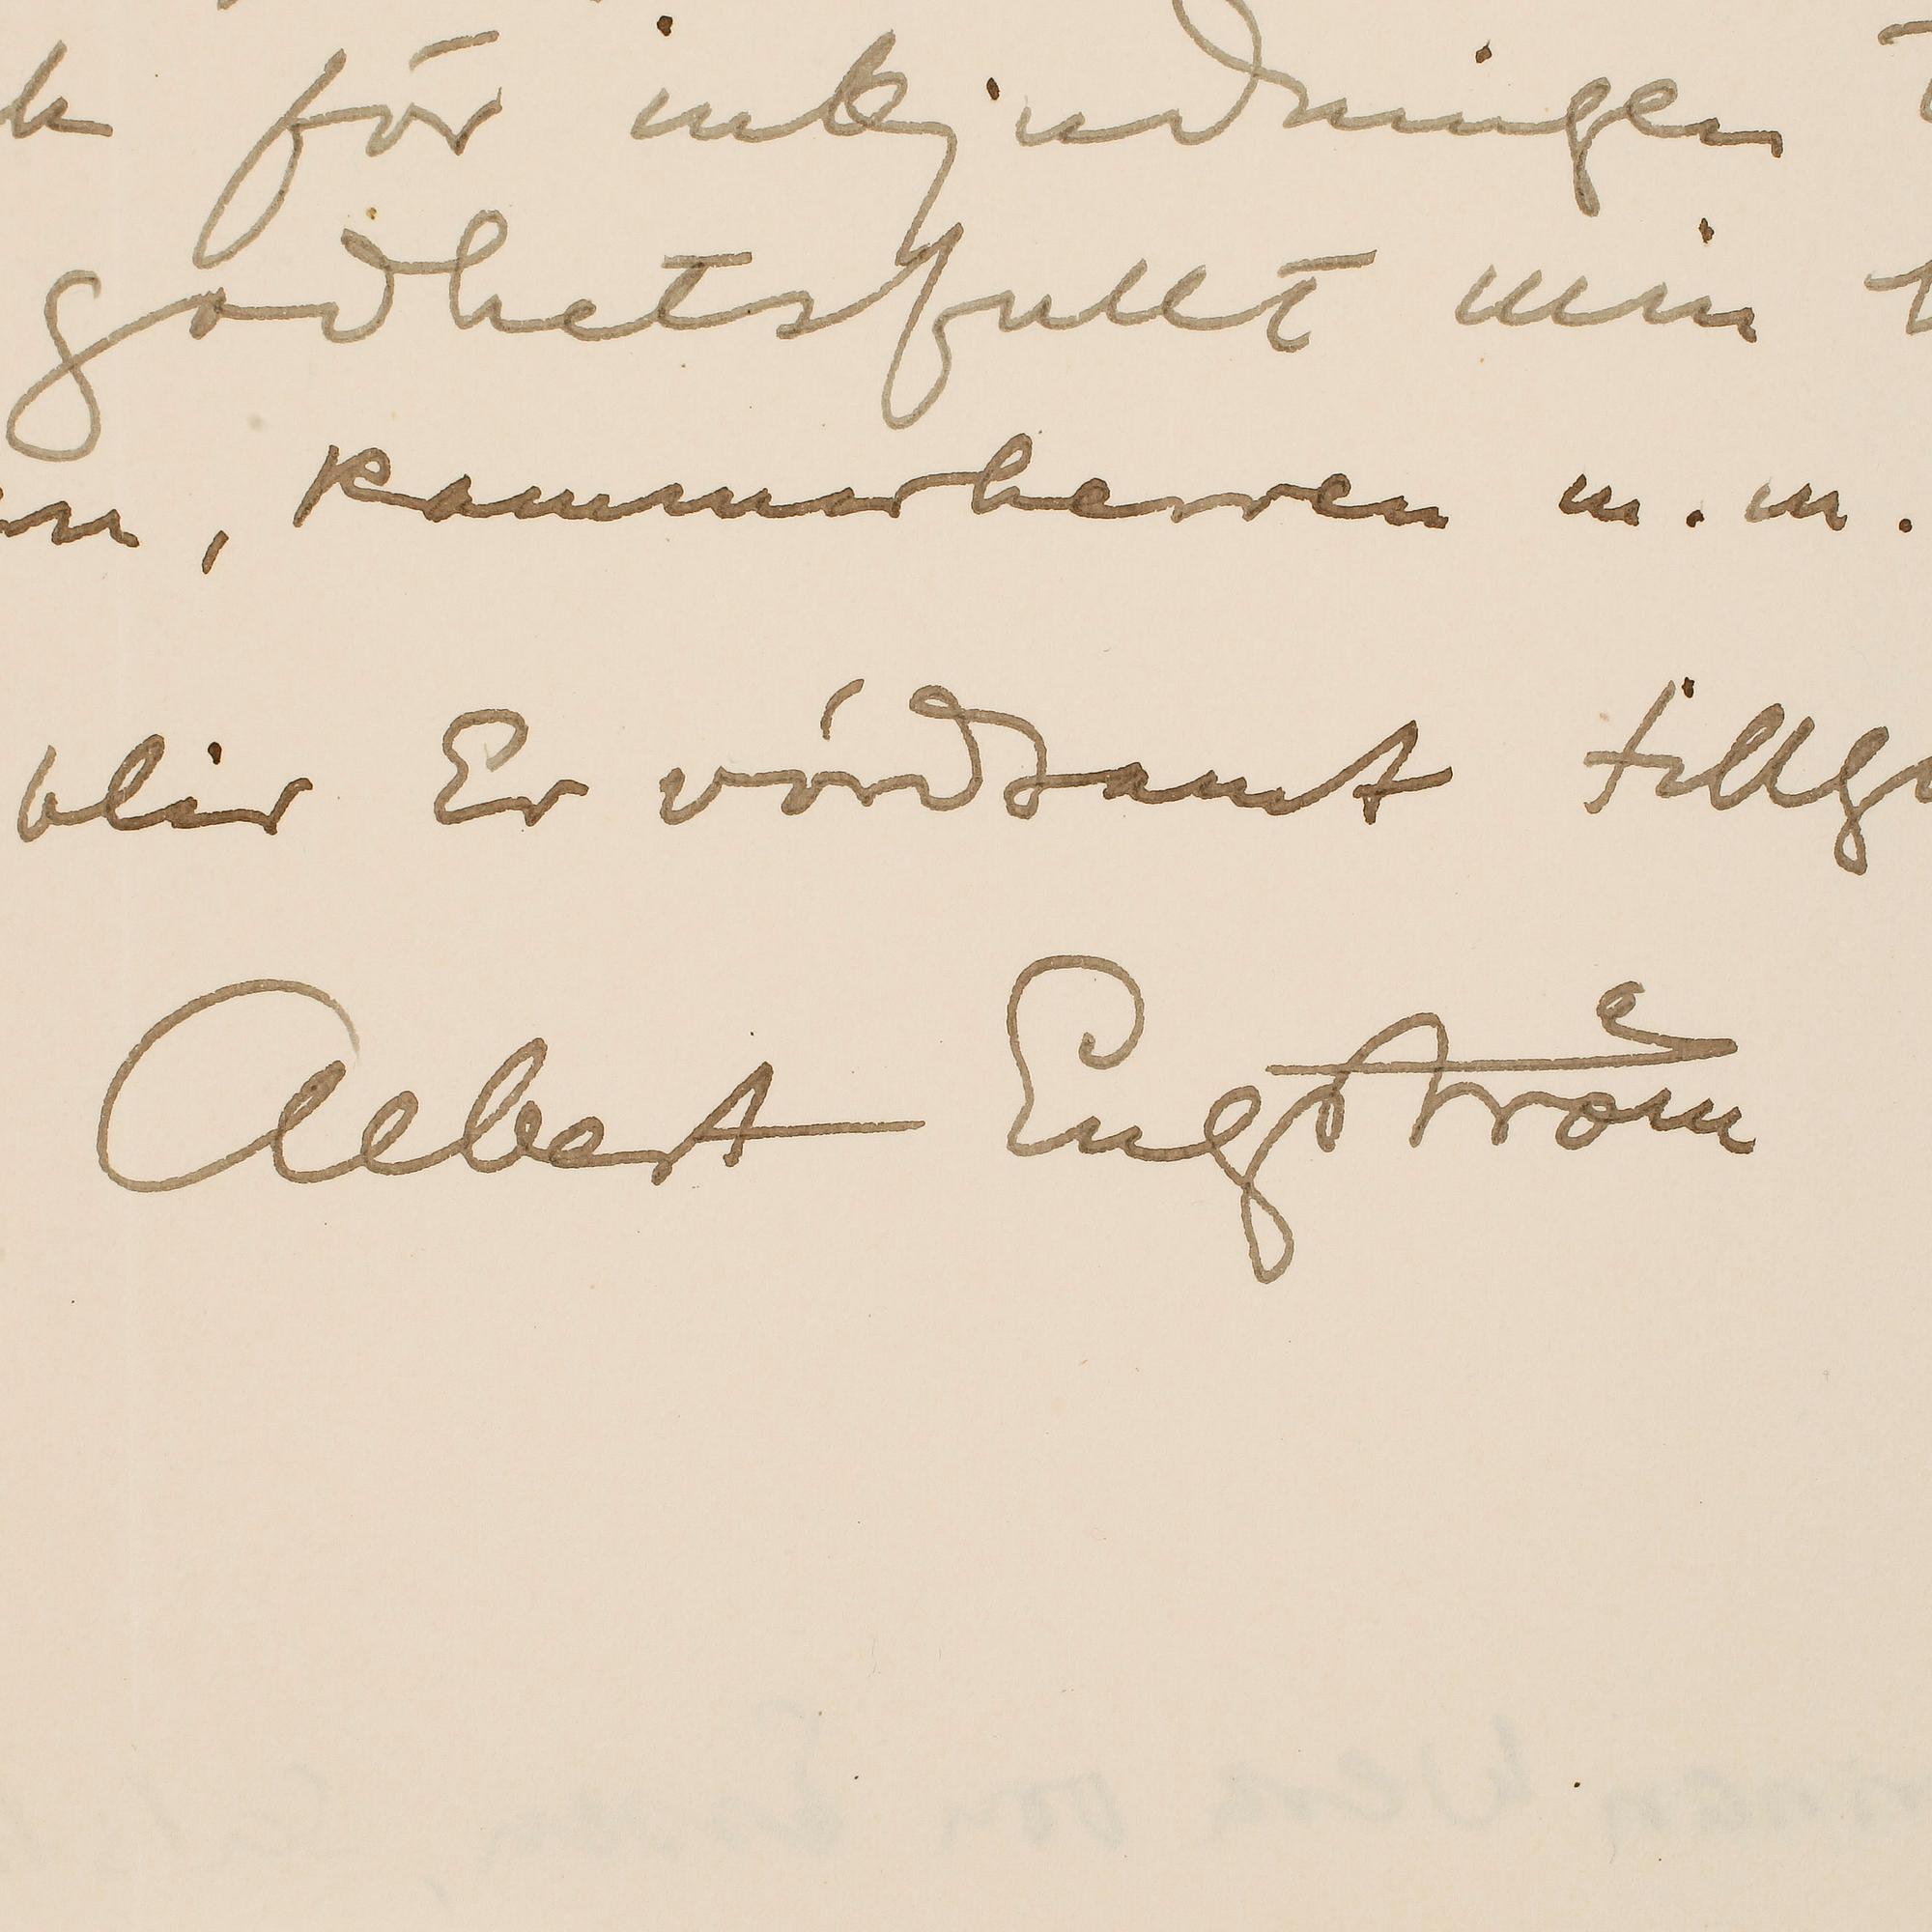 för inbjudningen
godhetsfullt min
, kammarherren m.m.
blir Er vördsamt tillg
Albert Engström